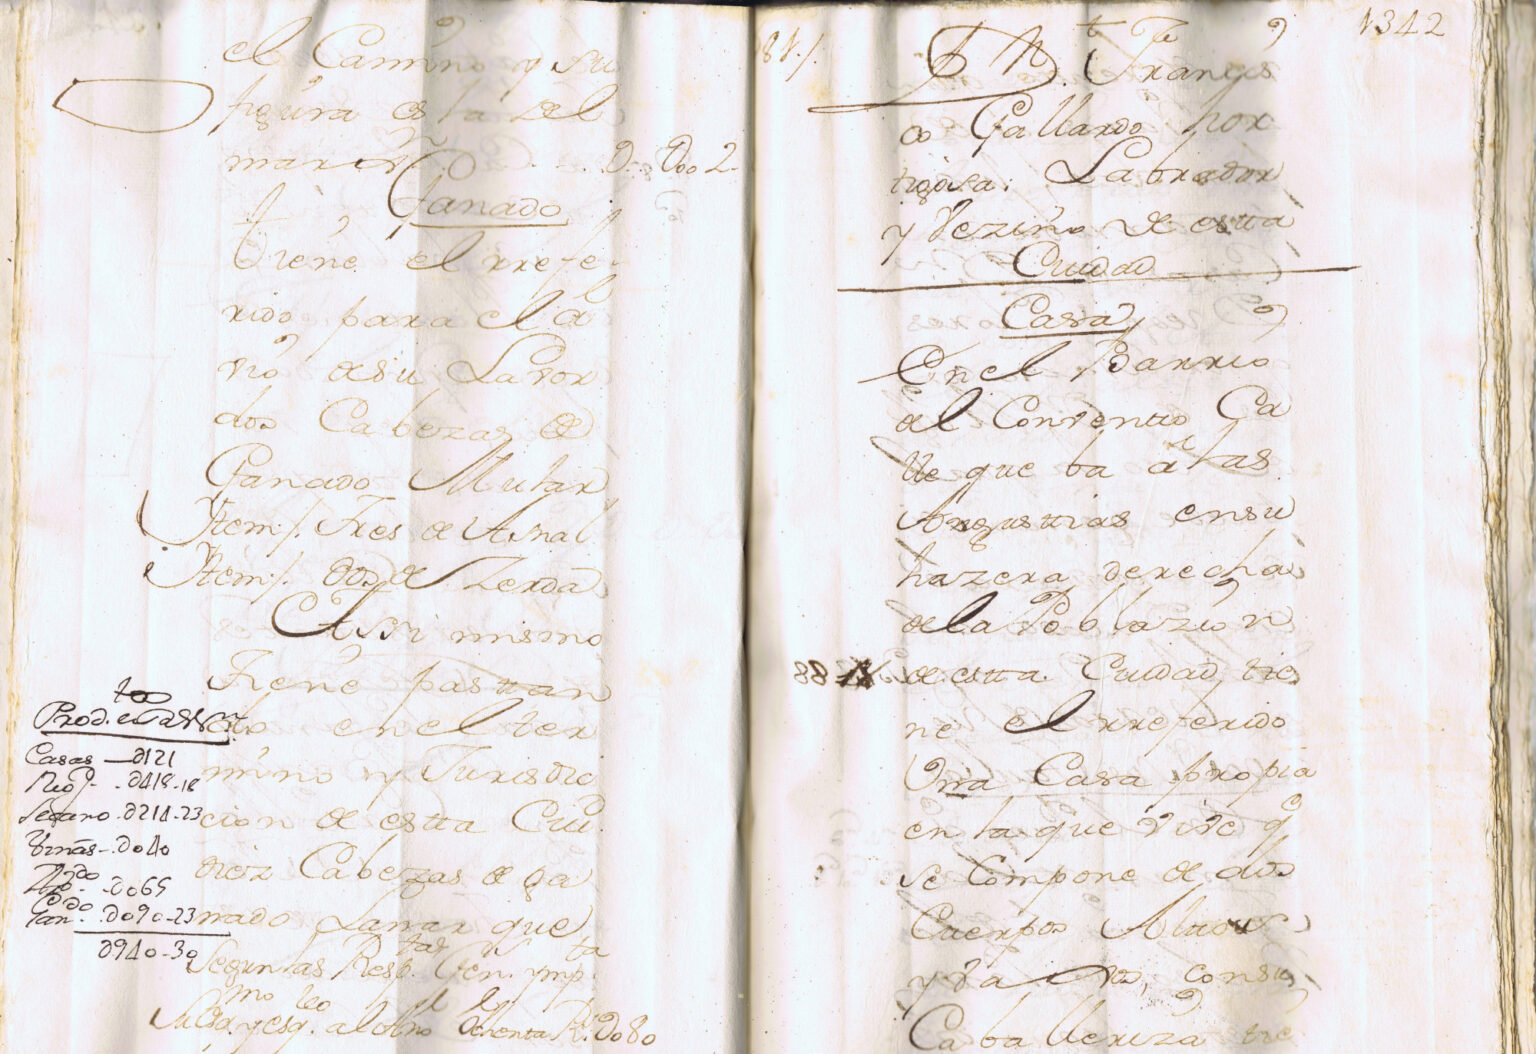 el Camino y su
figura es la del
marxen D. Doo2
Ganado
Tiene el rrefe
rido para el a
vio desu Lavor
dos Cabezas de
Ganado Mular
Ytem:/. Tres de Asnal
Ytem:/. dos de Zerda
Assi mismo
Tiene pasttan
do en el ter
mino y Jurisdic
cion de estta Ciud.
diez Cabezas de ga
nado Lanar que
Segun las Resp.tas Gen.s ymp.ta
al año ochenta R.s Do80
Casas - D121
D418-18
Secano - D214-23
Viñas - Do40
Do65
Gan.do - Do90-23
D940-30
81./
1342
Fran.cis
co Gallardo hor
tigosa. Labrador
y Vezino de estta
Ciudad
Casa
En el Barrio
del Conventto Ca
lle que ba a las
Angusttias ensu
hazera derecha
dela Poblazion
88 de estta Ciudad, tie
ne el rreferido
Una Casa propia
en la que vive q.
se Compone de dos
Cuerpos Alttos
y Vaxo, consu
Caballeriza tie